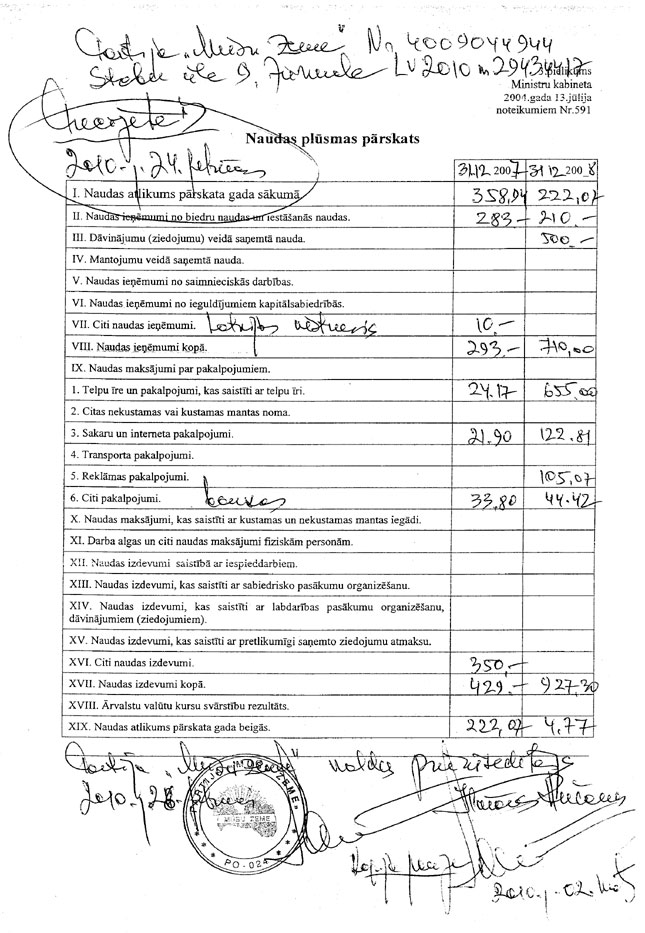 Partija „Mūsu Zeme" Nr 4009044944
iela 9, LV2010
3. pielikums
Ministru kabineta
2004.gada 13.jūlija
noteikumiem Nr.591
Naudas plūsmas pārskats
2010. g. 24. februāris
31.12 2007 31 12 2008
I. Naudas atlikums pārskata gada sākumā 358,94 222,07
II. Naudas ieņēmumi no biedru naudas un iestāšanās naudas. 283 – 210.–
III. Dāvinājumu (ziedojumu) veidā saņemtā nauda. 500.–
IV. Mantojumu veidā saņemtā nauda.
V. Naudas ieņēmumi no saimnieciskās darbības.
VI. Naudas ieņēmumi no ieguldījumiem kapitālsabiedrībās.
VII. Citi naudas ieņēmumi. 10.–
VIII. Naudas ieņēmumi kopā. 293.– 710,00
IX. Naudas maksājumi par pakalpojumiem.
1. Telpu īre un pakalpojumi, kas saistīti ar telpu īri. 24.17 655,00
2. Citas nekustamas vai kustamas mantas noma.
3. Sakaru un interneta pakalpojumi. 21.90 122.81
4. Transporta pakalpojumi.
5. Reklāmas pakalpojumi. 105,07
6. Citi pakalpojumi. bankas 33,80 44.42
X. Naudas maksājumi, kas saistīti ar kustamas un nekustamas mantas iegādi.
XI. Darba algas un citi naudas maksājumi fiziskām personām.
XII. Naudas izdevumi saistībā ar iespieddarbiem.
XIII. Naudas izdevumi, kas saistīti ar sabiedrisko pasākumu organizēšanu.
XIV. Naudas izdevumi, kas saistīti ar labdarības pasākumu organizēšanu,
dāvinājumiem (ziedojumiem).
XV. Naudas izdevumi, kas saistīti ar pretlikumīgi saņemto ziedojumu atmaksu.
XVI. Citi naudas izdevumi. 350,–
XVII. Naudas izdevumi kopā. 429.– 927,30
XVIII. Ārvalstu valūtu kursu svārstību rezultāts.
XIX. Naudas atlikums pārskata gada beigās. 222,07 4.77
Partija „Mūsu Zeme" valdes priekšsēdētājs
2010.g.
MŪSU ZEME
PO-024
2010.g. 02.